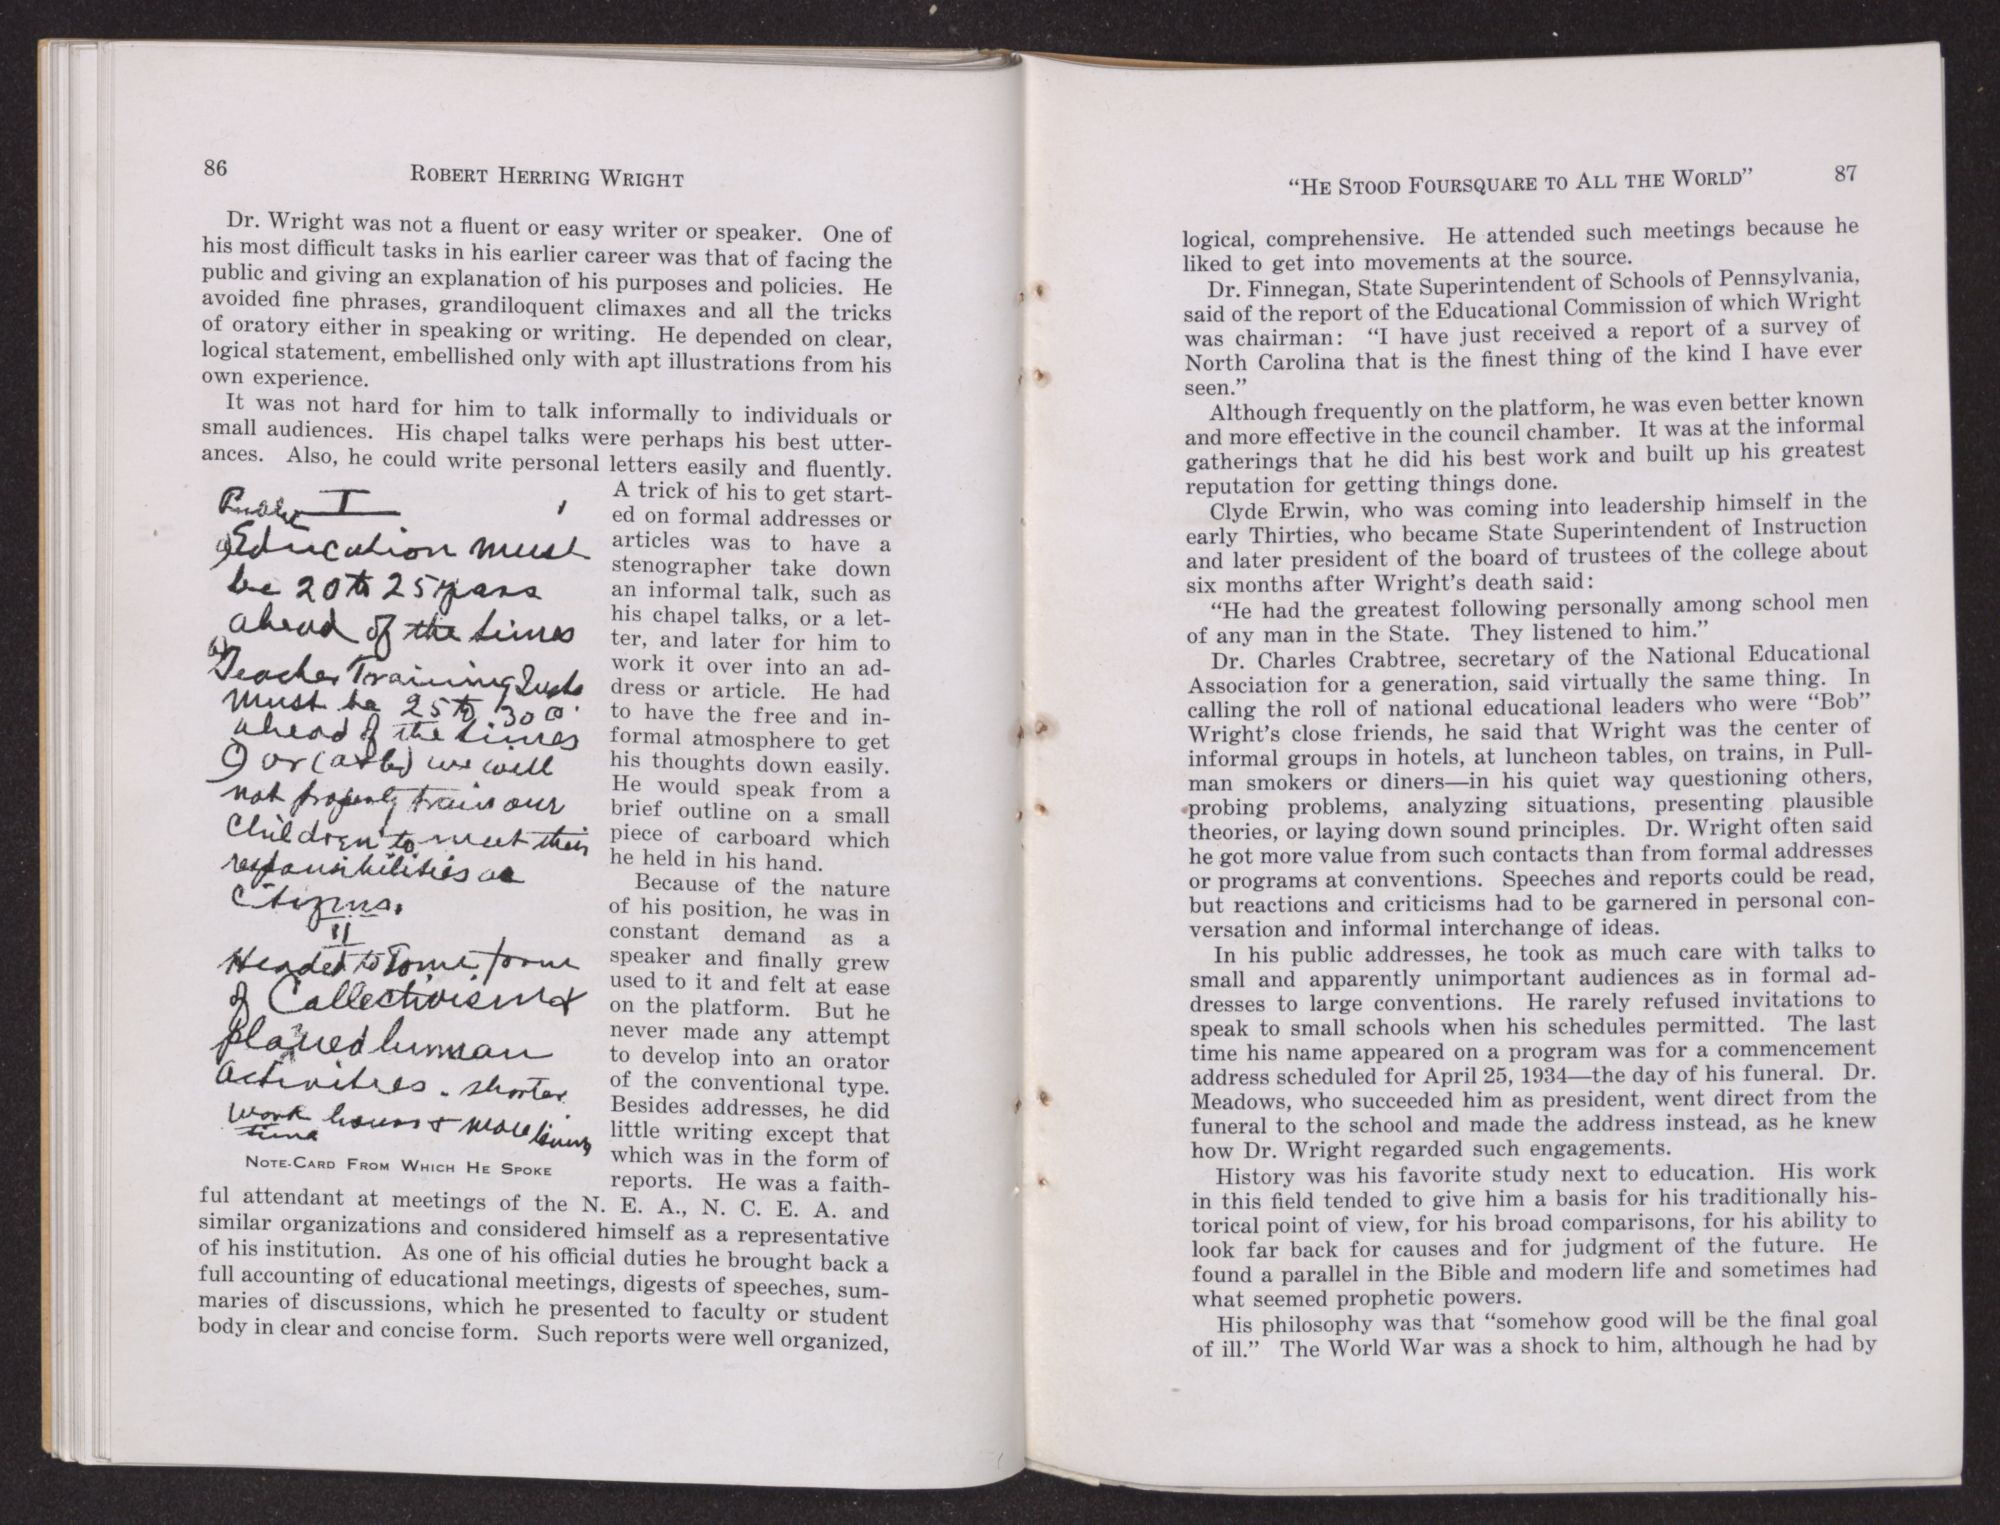 86
ROBERT HERRING WRIGHT
Dr. Wright was not a fluent or easy writer or speaker. One of
his most difficult tasks in his earlier career was that of facing the
public and giving an explanation of his purposes and policies. He
avoided fine phrases, grandiloquent climaxes and all the tricks
of oratory either in speaking or writing. He depended on clear,
logical statement, embellished only with apt illustrations from his
own experience.
It was not hard for him to talk informally to individuals or
small audiences. His chapel talks were perhaps his best utter-
ances. Also, he could write personal letters easily and fluently.
A trick of his to get start-
ed on formal addresses or
articles was to have a
stenographer take down
an informal talk, such as
his chapel talks, or a let-
ter, and later for him to
work it over into an ad-
dress or article. He had
to have the free and in-
formal atmosphere to get
his thoughts down easily.
He would speak from a
brief outline on a small
piece of carboard which
he held in his hand.
Because of the nature
of his position, he was in
constant demand as a
speaker and finally grew
used to it and felt at ease
on the platform. But he
never made any attempt
to develop into an orator
of the conventional type.
Besides addresses, he did
little writing except that
which was in the form of
reports. He was a faith-
I
a) Education must
be 20 to 25 years
ahead of the times
b) Teacher Training
must be 25 to 30
ahead of the times
c) or (a & b) we will
not properly train our
children to meet their
responsibilities as
Citizens.
II
Headed to some form
of Collectivism &
planed human
activities - shorter
work hours & more
time
NOTE-CARD FROM WHICH HE SPOKE
ful attendant at meetings of the N. E. A., N. C. E. A. and
similar organizations and considered himself as a representative
of his institution. As one of his official duties he brought back a
full accounting of educational meetings, digests of speeches, sum-
maries of discussions, which he presented to faculty or student
body in clear and concise form. Such reports were well organized,
"HE STOOD FOURSQUARE TO ALL THE WORLD"
87
logical, comprehensive. He attended such meetings because he
liked to get into movements at the source.
Dr. Finnegan, State Superintendent of Schools of Pennsylvania,
said of the report of the Educational Commission of which Wright
was chairman: "I have just received a report of a survey of
North Carolina that is the finest thing of the kind I have ever
seen."
Although frequently on the platform, he was even better known
and more effective in the council chamber. It was at the informal
gatherings that he did his best work and built up his greatest
reputation for getting things done.
Clyde Erwin, who was coming into leadership himself in the
early Thirties, who became State Superintendent of Instruction
and later president of the board of trustees of the college about
six months after Wright's death said:
"He had the greatest following personally among school men
of any man in the State. They listened to him."
Dr. Charles Crabtree, secretary of the National Educational
Association for a generation, said virtually the same thing. In
calling the roll of national educational leaders who were "Bob"
Wright's close friends, he said that Wright was the center of
informal groups in hotels, at luncheon tables, on trains, in Pull-
man smokers or diners—in his quiet way questioning others,
probing problems, analyzing situations, presenting plausible
theories, or laying down sound principles. Dr. Wright often said
he got more value from such contacts than from formal addresses
or programs at conventions. Speeches and reports could be read,
but reactions and criticisms had to be garnered in personal con-
versation and informal interchange of ideas.
In his public addresses, he took as much care with talks to
small and apparently unimportant audiences as in formal ad-
dresses to large conventions. He rarely refused invitations to
speak to small schools when his schedules permitted. The last
time his name appeared on a program was for a commencement
address scheduled for April 25, 1934—the day of his funeral. Dr.
Meadows, who succeeded him as president, went direct from the
funeral to the school and made the address instead, as he knew
how Dr. Wright regarded such engagements.
History was his favorite study next to education. His work
in this field tended to give him a basis for his traditionally his-
torical point of view, for his broad comparisons, for his ability to
look far back for causes and for judgment of the future. He
found a parallel in the Bible and modern life and sometimes had
what seemed prophetic powers.
His philosophy was that "somehow good will be the final goal
of ill." The World War was a shock to him, although he had by